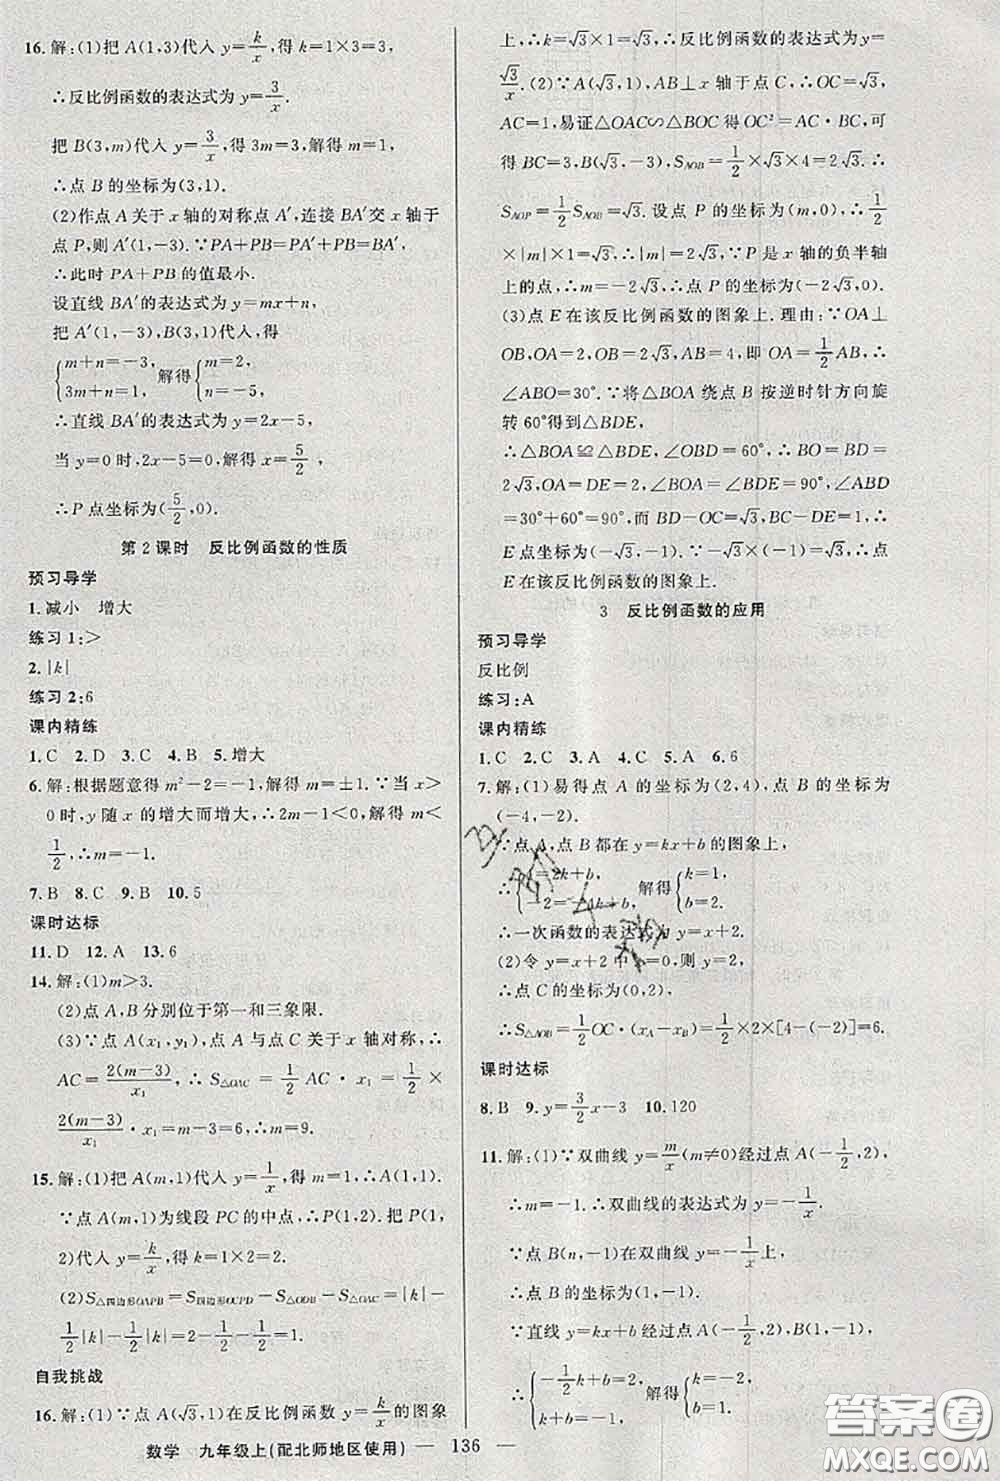 16.解:(1)把 A(1,3)代入 y=k/x,得 k=1×3=3,
∴反比例函数的表达式为 y=3/x.
把 B(3,m)代入 y=3/x,得 3m=3,解得 m=1,
∴点 B 的坐标为(3,1).
(2)作点 A 关于 x 轴的对称点 A′,连接 BA′交 x 轴于
点 P,则 A′(1,-3).∵PA+PB=PA′+PB=BA′,
∴此时 PA+PB 的值最小.
设直线 BA′的表达式为 y=mx+n,
把 A′(1,-3),B(3,1)代入,得
{m+n=-3, 3m+n=1, 解得{m=2, n=-5.
∴直线 BA′的表达式为 y=2x-5,
当 y=0 时,2x-5=0,解得 x=5/2,
∴P 点坐标为(5/2,0).
第 2 课时 反比例函数的性质
预习导学
1.减小 增大
练习 1:>
2.|k|
练习 2:6
课内精练
1.C 2.D 3.C 4.B 5.增大
6.解:根据题意得 m²-2=-1,解得 m=±1.∵当 x>
0时,y 随 x 的增大而增大,∴2m-1<0,解得 m<
1/2,∴m=-1.
7.B 8.C 9.B 10.5
课时达标
11.D 12.A 13.6
14.解:(1)m>3.
(2)点 A,B 分别位于第一和三象限.
(3)∵点 A(x₁,y₁),点 A 与点 C 关于 x 轴对称,∴
AC=2(m-3)/x₁,∴S△OAC=1/2 AC·x₁=1/2×
2(m-3)/x₁·x₁=m-3=6,∴m=9.
15.解:(1)把 A(m,1)代入 y=1/x,得 m=1,∴A(1,1).
∵点 A(m,1)为线段 PC 的中点,∴P(1,2).把 P(1,
2)代入 y=k/x,得 k=1×2=2.
(2)S△四边形OAPB=S四边形OCPD-S△ODB-S△OAC=|k|-
1/2|k|-1/2|k|=2-1/2-1/2=1.
自我挑战
16.解:(1)∵点 A(√3,1)在反比例函数 y=k/x 的图象
上,∴k=√3×1=√3,∴反比例函数的表达式为 y=
√3/x.(2)∵A(√3,1),AB⊥x 轴于点 C,∴OC=√3,
AC=1,易证△OAC∽△BOC 得 OC²=AC·BC,可
得 BC=3,B(√3,-3),S△AOB=1/2×√3×4=2√3.∴
S△AOP=1/2S△AOB=√3.设点 P 的坐标为(m,0),∴1/2
×|m|×1=√3,∴|m|=2√3.∵P 是 x 轴的负半轴
上的点,∴m=-2√3,∴点 P 的坐标为(-2√3,0).
(3)点 E 在该反比例函数的图象上.理由:∵OA⊥
OB,OA=2,OB=2√3,AB=4,即 OA=1/2AB,∴
∠ABO=30°.∵将△BOA 绕点 B 按逆时针方向旋
转 60°得到△BDE,
∴△BOA≌△BDE,∠OBD=60°,∴BO=BD=
2√3,OA=DE=2,∠BOA=∠BDE=90°,∠ABD=
30°+60°=90°,而 BD-OC=√3,BC-DE=1,∴
E点坐标为(-√3,-1),∵-√3×(-1)=√3,∴点
E在该反比例函数的图象上.
3 反比例函数的应用
预习导学
反比例
练习:A
课内精练
1.C 2.C 3.A 4.C 5.A 6.6
7.解:(1)易得点 A 的坐标为(2,4),点 B 的坐标为
(-4,-2).
∵点 A,点 B 都在 y=kx+b 的图象上,
=2k+b, -2=-4k+b, 解得{k=1, b=2.
∴一次函数的表达式为 y=x+2.
(2)令 y=x+2 中 x=0,则 y=2,
∴点 C 的坐标为(0,2),
∴S△AOB=1/2OC·(xA-xB)=1/2×2×[4-(-2)]=6.
课时达标
8.B 9.y=3/2x-3 10.120
11.解:(1)∵双曲线 y=m/x(m≠0)经过点 A(-1/2,2),
∴m=-1.∴双曲线的表达式为 y=-1/x.
∵点 B(n,-1)在双曲线 y=-1/x上,
∴点 B 的坐标为(1,-1).
∵直线 y=kx+b 经过点 A(-1/2,2),B(1,-1),
∴{-1/2k+b=2, k+b=-1, 解得{k=-2, b=1.
数学 九年级上(配北师地区使用) — 136 —
答案圈
MXQE.COM